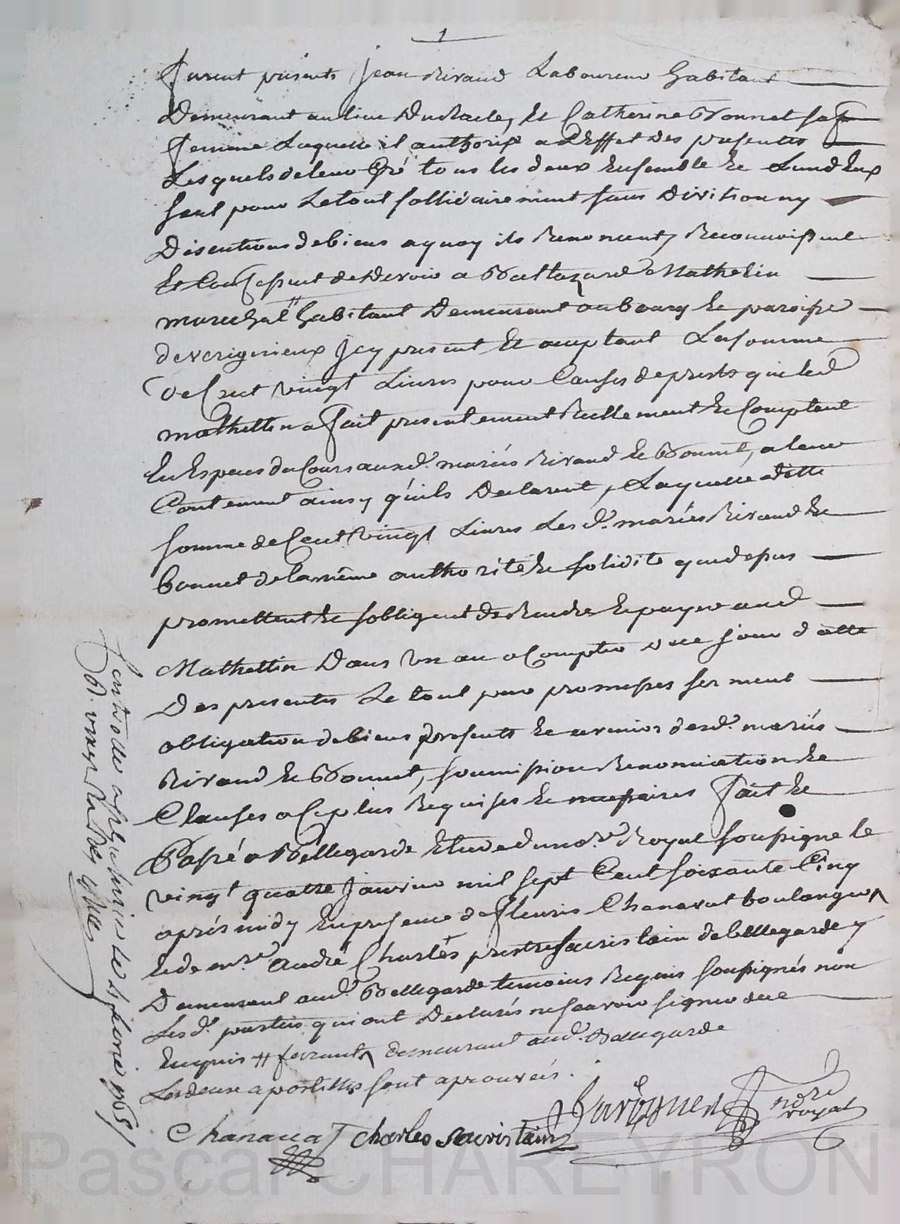 1
Furent présents Jean Rivaud Laboureur habitant
Demeurant au lieu Et Catherine Bonnet sa
femme Laquelle il authorise a L'Effet des presentes
Lesquels de leur gré tous les deux Ensemble Et L'un d'Eux
seul pour Le tout sollidairement sans Division ny
Discutions de biens a quoy ils Renoncent, Reconnoissent
Et Confessent de Devoir a Baltazard Mathelin
marechal H habitant Demeurant au bourg Et paroisse
de verignieux Icy present Et acceptant La somme
De Cent vingt Livres pour Causes de prests que led
mathellin a fait presentement Reellement Et Comptant
En Especes du Cours auxd. mariés Rivaud Et Bonnet, a leur
Contentement ainsy qu'ils Declarent, Laquelle ditte
somme de Cent vingt Livres Les d. mariés Rivaud Et
bonnet de la même authorité Et solidité que dessus
promettent Et sobligent de Rendre Et payer aud
Mathellin Dans un an a Compter de ce jour datte
Des presentes Le tout pour promesses serment
obligation de biens presents Et avenirs desd. mariés
Rivaud Et Bonnet, soumission Renonciation Et
Clauses a Ce plus Requises Et necessaires fait Et
Passé a Bellegarde Etude du nore. Royal soussigne le
vingt quatre Janvier mil sept Cent soixante Cinq
après midy En presence de fleuris Chanavat boulanger
Et de mre. André Charles prestre sacristain de bellegarde y
Demeurant aud. Bellegarde temoins Requis soussignés non
Les d. parties qui ont Declarés ne scavoir signer de ce
Enquis H ferrant demeurant aud. Bellegarde
Les deux apostilles sont aprouvéis.
nore
royal
Chanavat Charles sacristain
Controlle a le 31 janvier 1765
Pascal CHAREYRON